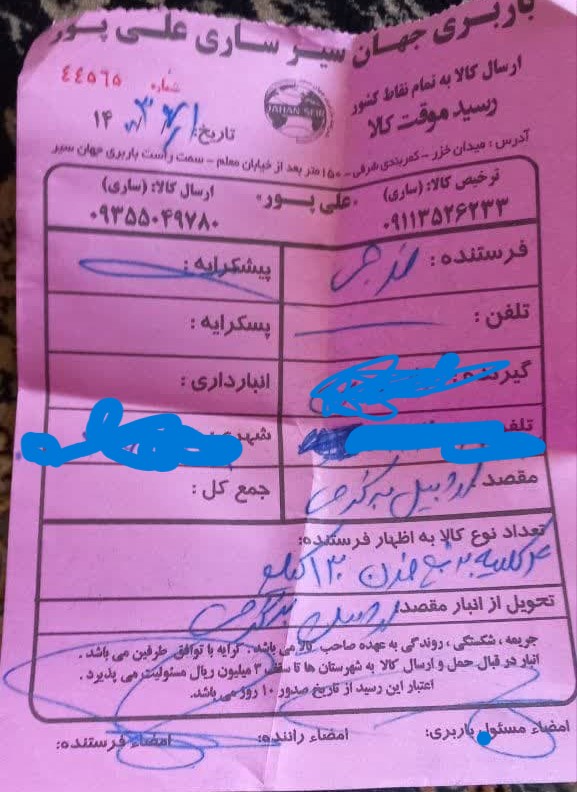 باربری جهان سیر ساری علی پور
ارسال کالا به تمام نقاط کشور
شماره ۴۴۵۶۵
رسید موقت کالا
JAHAN SEIR
تاریخ: ۱۴
آدرس : میدان خزر - کمربندی شرقی - ۱۵۰ متر بعد از خیابان معلم - سمت راست باربری جهان سیر
ترخیص کالا: (ساری) «علی پور» ارسال کالا: (ساری)
۰۹۱۱۳۵۲۶۲۳۳ ۰۹۳۵۵۰۴۹۷۸۰
فرستنده : پیشکرایه :
تلفن : پسکرایه :
انبارداری :
مقصد اردبیل جمع کل :
تعداد نوع کالا به اظهار فرستنده:
۱۳۰ کیلو
تحویل از انبار مقصد: اردبیل
جریمه ، شکستگی ، روندگی به عهده صاحب کالا می باشد . کرایه با توافق طرفین می باشد .
انبار در قبال حمل و ارسال کالا به شهرستان ها تا سقف ۳ میلیون ریال مسئولیت می پذیرد .
اعتبار این رسید از تاریخ صدور ۱۰ روز می باشد.
امضاء مسئول باربری: امضاء راننده: امضاء فرستنده: